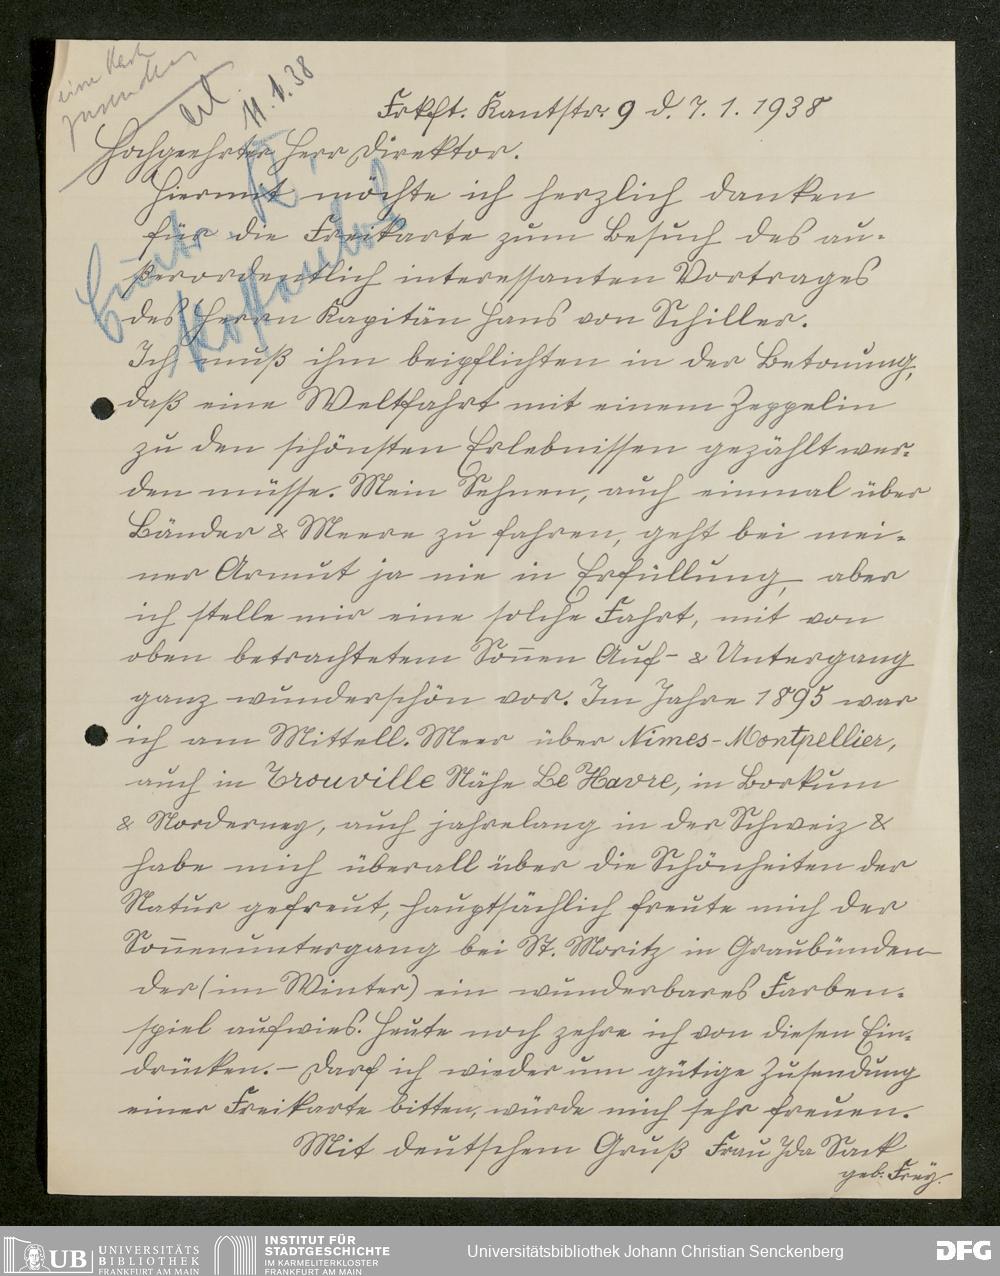 eine Karte
zusenden
erl.
11.1.38
Frkft. Kantstr. 9 d. 7. 1. 1938
Hochgeehrter Herr Direktor.
Hiermit möchte ich herzlich danken
für die Freikarte zum Besuch des au-
ßerordentlich interessanten Vortrages
des Herrn Kapitän Hans von Schiller.
Ich muß ihm beipflichten in der Betonung,
daß eine Weltfahrt mit einem Zeppelin
zu den schönsten Erlebnissen gezählt wer-
den müsse. Mein Sehnen, auch einmal über
Länder & Meere zu fahren, geht bei mei-
ner Armut ja nie in Erfüllung, aber
ich stelle mir eine solche Fahrt, mit von
oben betrachtetem Sonnen Auf- & Untergang
ganz wunderschön vor. Im Jahre 1895 war
ich am Mittell. Meer über Nimes-Montpellier,
auch in Trouville Nähe Le Havre, in Borkum
& Norderney, auch jahrelang in der Schweiz &
habe mich überall über die Schönheiten der
Natur gefreut, hauptsächlich freute mich der
Sonnenuntergang bei St. Moritz in Graubünden
der (im Winter) ein wunderbares Farben-
spiel aufwies. Heute noch zehre ich von diesen Ein-
drücken. – Darf ich wieder um gütige Zusendung
einer Freikarte bitten, würde mich sehr freuen.
Mit deutschem Gruß Frau Ida Sack
geb. Frey.
UB UNIVERSITÄTS
BIBLIOTHEK
FRANKFURT AM MAIN
INSTITUT FÜR
STADTGESCHICHTE
IM KARMELITERKLOSTER
FRANKFURT AM MAIN
Universitätsbibliothek Johann Christian Senckenberg
DFG